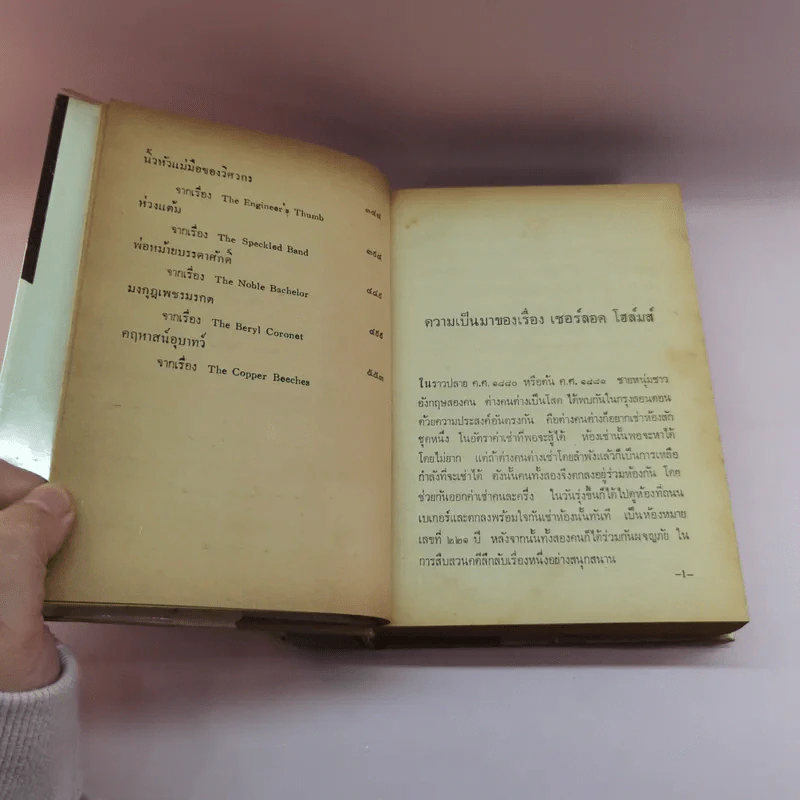 นิ้วหัวแม่มือของวิศวกร
จากเรื่อง The Engineer's Thumb
ห่วงแต้ม
จากเรื่อง The Speckled Band ๓๙๕
พ่อหม้ายบรรดาศักดิ์
จากเรื่อง The Noble Bachelor ๔๔๕
มงกุฎเพชรมรกต
จากเรื่อง The Beryl Coronet ๔๙๕
คฤหาสน์อุบาทว์
จากเรื่อง The Copper Beeches ๕๕๓
ความเป็นมาของเรื่อง เชอร์ลอค โฮล์มส์
ในราวปลาย ค.ศ. ๑๘๘๐ หรือต้น ค.ศ. ๑๘๘๑ ชายหนุ่มชาว
อังกฤษสองคน ต่างคนต่างเป็นโสด ได้พบกันในกรุงลอนดอน
ด้วยความประสงค์อันตรงกัน คือต่างคนต่างก็อยากเช่าห้องสัก
ชุดหนึ่ง ในอัตราค่าเช่าที่พอจะสู้ได้ ห้องเช่านั้นพอจะหาได้
โดยไม่ยาก แต่ถ้าต่างคนต่างเช่าโดยลำพังแล้วก็เป็นการเหลือ
กำลังที่จะเช่าได้ ดังนั้นคนทั้งสองจึงตกลงอยู่ร่วมห้องกัน โดย
ช่วยกันออกค่าเช่าคนละครึ่ง ในวันรุ่งขึ้นก็ได้ไปดูห้องที่ถนน
เบเกอร์และตกลงพร้อมใจกันเช่าห้องนั้นทันที เป็นห้องหมาย
เลขที่ ๒๒๑ บี หลังจากนั้นทั้งสองคนก็ได้ร่วมกันผจญภัย ใน
การสืบสวนคดีลึกลับเรื่องหนึ่งอย่างสนุกสนาน
–1–